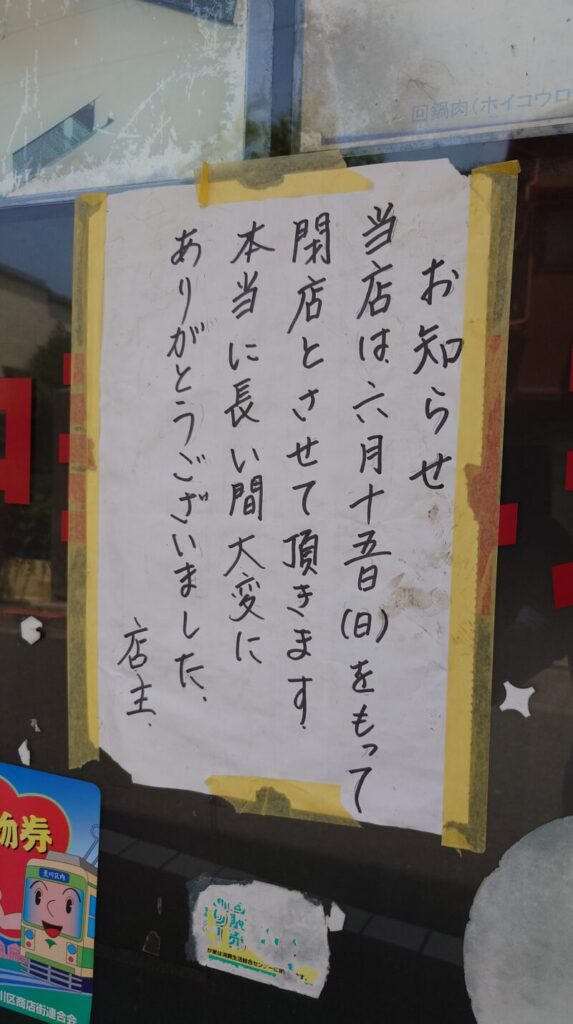 回鍋肉(ホイコウロ
お知らせ
当店は六月十五日(日)をもって
閉店とさせて頂きます
本当に長い間大変に
ありがとうございました、
店主、
物券
荒川区内
川区商店街連合会